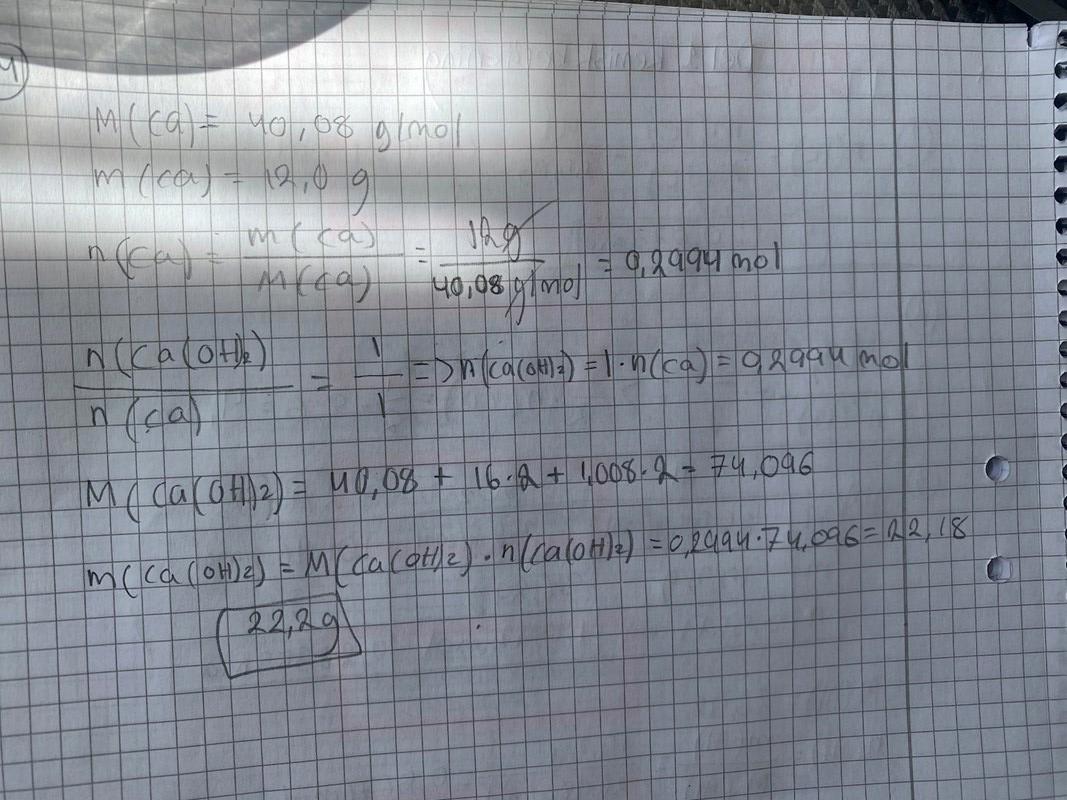 M(Ca) = 40,08 g/mol
m(Ca) = 12,0 g
n(Ca) = m(Ca) / M(Ca) = 12g / 40,08 g/mol = 0,2994 mol
n(Ca(OH)₂) / n(Ca) = 1 / 1 => n(Ca(OH)₂) = 1 · n(Ca) = 0,2994 mol
M(Ca(OH)₂) = 40,08 + 16·2 + 1,008·2 = 74,096
m(Ca(OH)₂) = M(Ca(OH)₂) · n(Ca(OH)₂) = 0,2994·74,096 = 22,18
22,2g